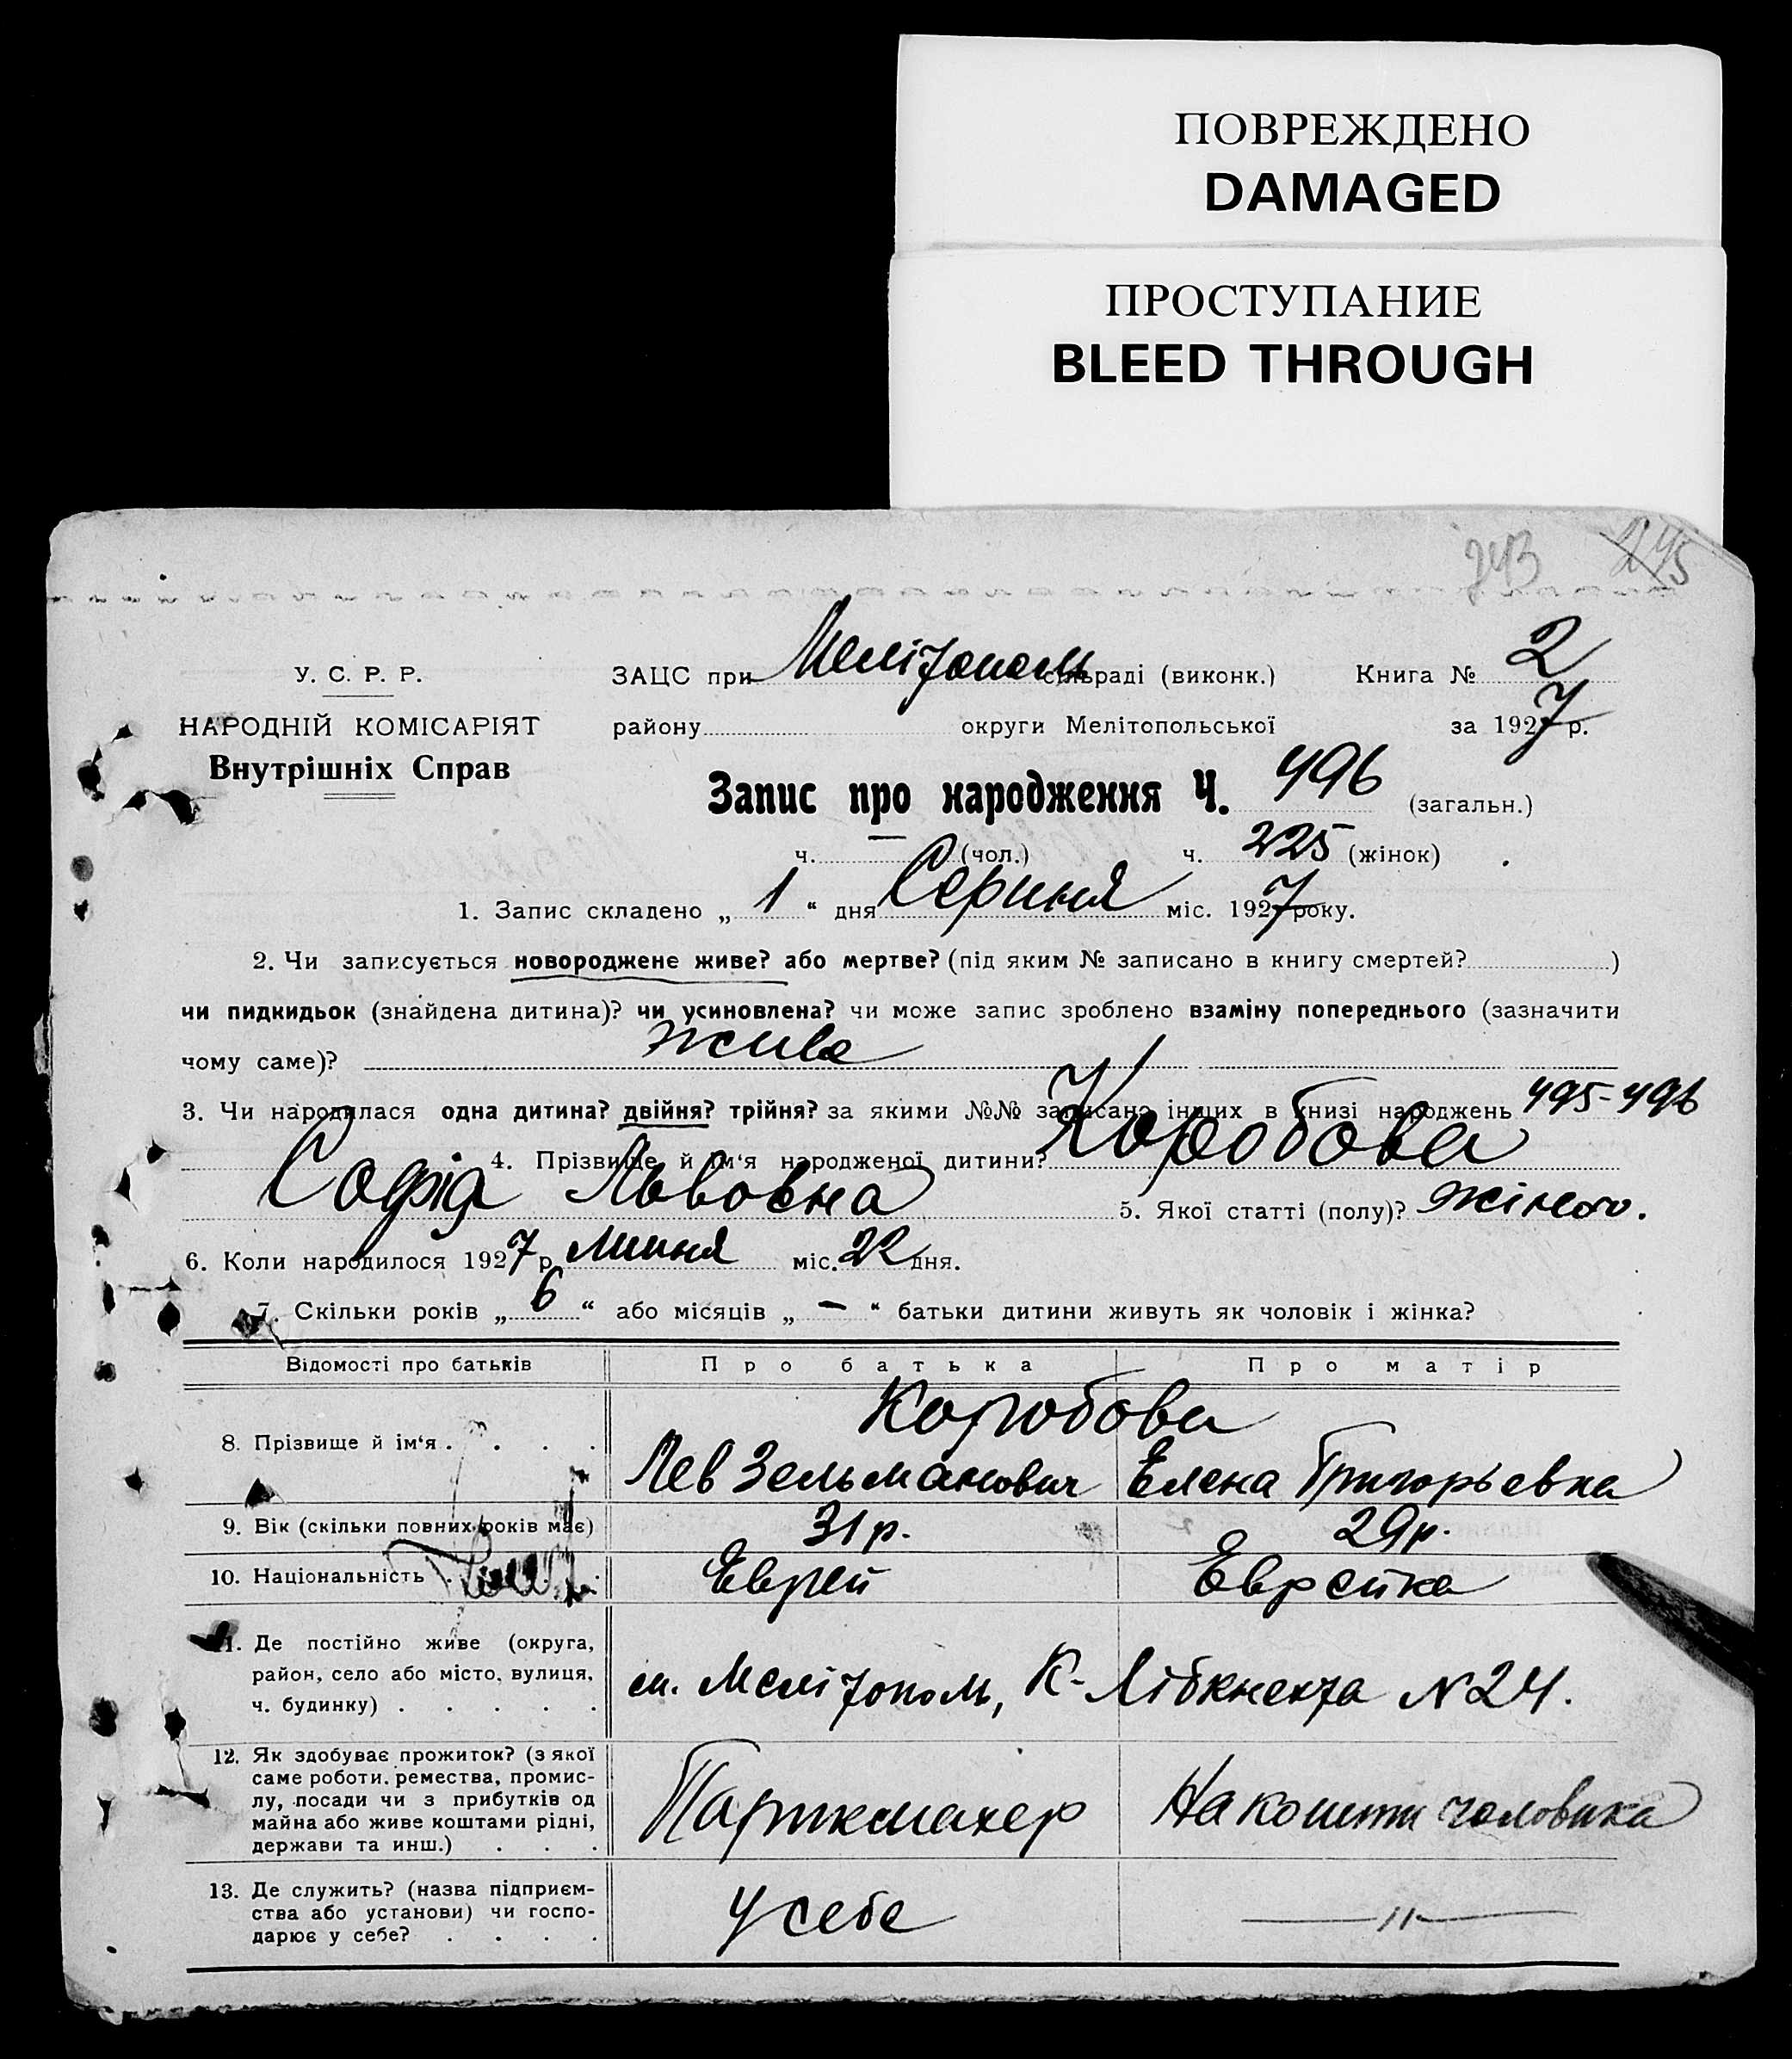 ПОВРЕЖДЕНО
DAMAGED
ПРОСТУПАНИЕ
BLEED THROUGH
243 245
У. С. Р. Р. ЗАЦС при Мелітополь сільраді (виконк.) Книга № 2
НАРОДНІЙ КОМІСАРІЯТ району округи Мелітопольської за 1927 р.
Внутрішніх Справ
Запис про народження Ч. 496 (загальн.)
ч. — (чол.) ч. 225 (жінок)
1. Запис складено „ 1 “ дня Серпня міс. 1927 року.
2. Чи записується новороджене живе? або мертве? (під яким № записано в книгу смертей? )
чи пидкидьок (знайдена дитина)? чи усиновлена? чи може запис зроблено взаміну попереднього (зазначити
чому саме)? живе
3. Чи народилася одна дитина? двійня? трійня? за якими №№ записано інших в книзі народжень 495-496
4. Прізвище й ім‘я народженої дитини? Коробова
Софія Львовна 5. Якої статті (полу)? жіночо.
6. Коли народилося 1927 р. липня міс. 22 дня.
7. Скільки років „ 6 “ або місяців „ — “ батьки дитини живуть як чоловік і жінка?
Відомості про батьків Про батька Про матір
Коробова
8. Прізвище й ім‘я . . . . Лев Зельманович Елена Григорьевна
9. Вік (скільки повних років має) 31 р. 29 р.
10. Національність Еврей Еврейка
11. Де постійно живе (округа,
район, село або місто, вулиця,
ч. будинку) . . . . . м. Мелітополь, К-Лібкнехта N 24.
12. Як здобуває прожиток? (з якої
саме роботи, ремества, промис-
лу, посади чи з прибутків од
майна або живе коштами рідні,
держави та инш.) . . . Парикмахер На кошти чоловика
13. Де служить? (назва підприєм-
ства або установи) чи госпо-
дарює у себе? . . . . У себе —"—